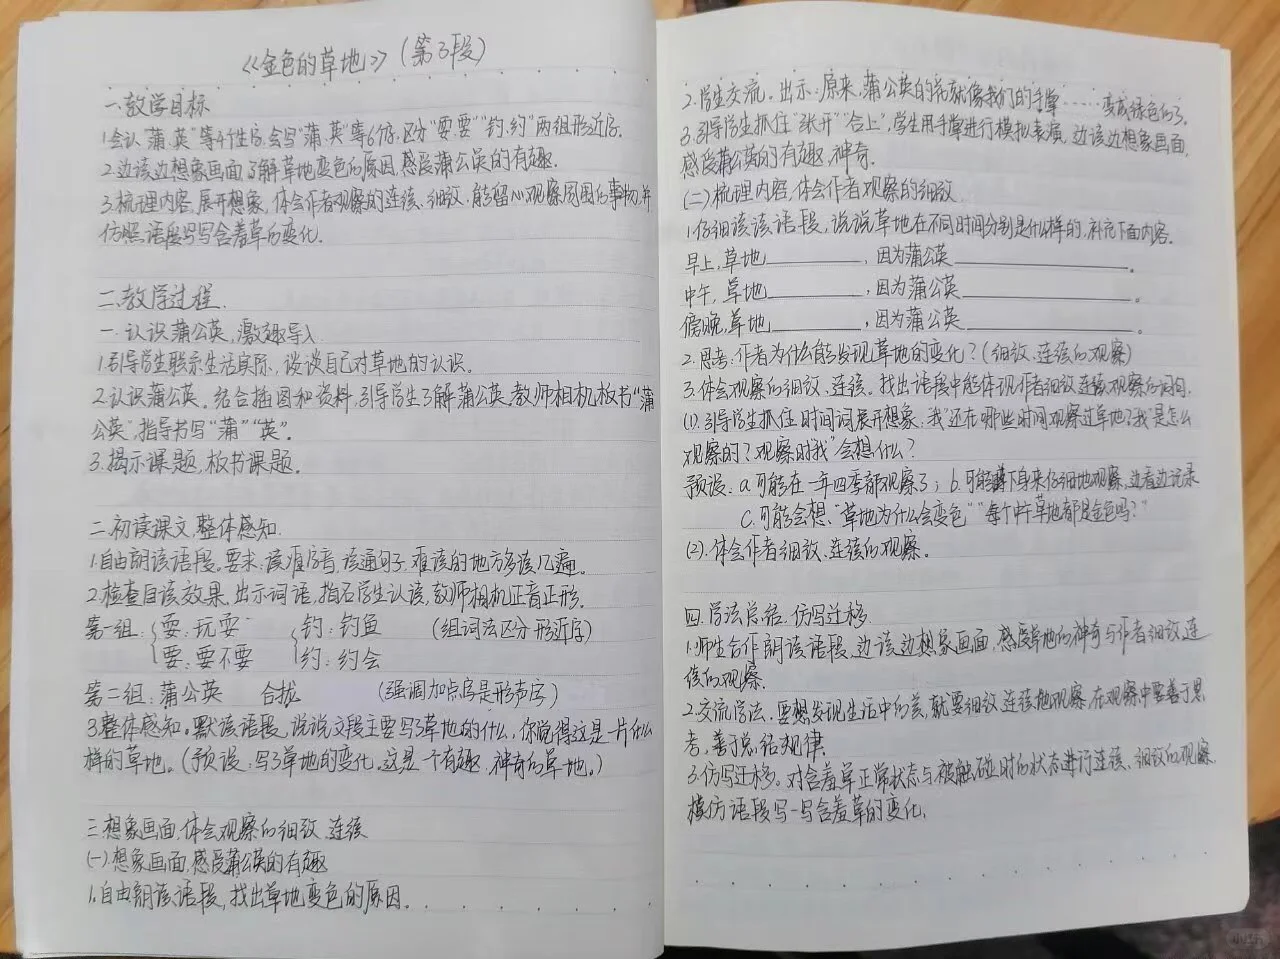 《金色的草地》(第3段)
一.教学目标
1.会认“蒲、英”等4个生字,会写“蒲、英”等6个字,区分“耍、要”“钓、约”两组形近字.
2.边读边想象画面,了解草地变色的原因,感受蒲公英的有趣.
3.梳理内容,展开想象,体会作者观察的连续、细致.能留心观察周围的事物,并
仿照语段写写含羞草的变化.
二.教学过程.
一.认识蒲公英,激趣导入
1.引导学生联系生活实际,谈谈自己对草地的认识.
2.认识蒲公英.结合插图和资料,引导学生了解蒲公英.教师相机板书“蒲
公英”,指导书写“蒲”“英”.
3.揭示课题,板书课题.
二.初读课文,整体感知.
1.自由朗读语段.要求:读准字音,读通句子,难读的地方多读几遍.
2.检查自读效果.出示词语,指名学生认读,教师相机正音正形.
第一组:{耍:玩耍 {钓:钓鱼 (组词法区分形近字)
要:要不要 约:约会
第二组:蒲公英 合拢 (强调加点字是形声字)
3.整体感知.默读语段,说说文段主要写了草地的什么,你觉得这是一片什么
样的草地.(预设:写了草地的变化.这是一个有趣、神奇的草地.)
三.想象画面,体会观察的细致、连续
(一).想象画面,感受蒲公英的有趣
1.自由朗读语段,找出草地变色的原因.
2.学生交流.出示:原来,蒲公英的花就像我们的手掌……变成绿色的了.
3.引导学生抓住“张开”“合上”,学生用手掌进行模拟表演,边读边想象画面,
感受蒲公英的有趣、神奇.
(二)梳理内容,体会作者观察的细致.
1.仔细读读语段,说说草地在不同时间分别是什么样的,补充下面内容.
早上,草地________,因为蒲公英________________.
中午,草地________,因为蒲公英________________.
傍晚,草地________,因为蒲公英________________.
2.思考:作者为什么能发现草地的变化?(细致、连续的观察)
3.体会观察的细致、连续.找出语段中能体现作者细致连续观察的词句.
(1).引导学生抓住时间词展开想象:“我”还在哪些时间观察过草地?“我”是怎么
观察的?观察时“我”会想什么?
预设:a.可能在一年四季都观察了;b.可能蹲下身来仔细地观察,边看边记录
C.可能会想:“草地为什么会变色”“每个中午草地都是金色吗?”
(2).体会作者细致、连续的观察.
四.学法总结,仿写迁移
1.师生合作朗读语段,边读边想象画面,感受草地的神奇与作者细致、连
续的观察.
2.交流学法.要想发现生活中的美,就要细致、连续地观察,在观察中要善于思
考,善于总结规律.
3.仿写迁移.对含羞草正常状态与被触碰时的状态进行连续、细致的观察,
模仿语段写一写含羞草的变化.